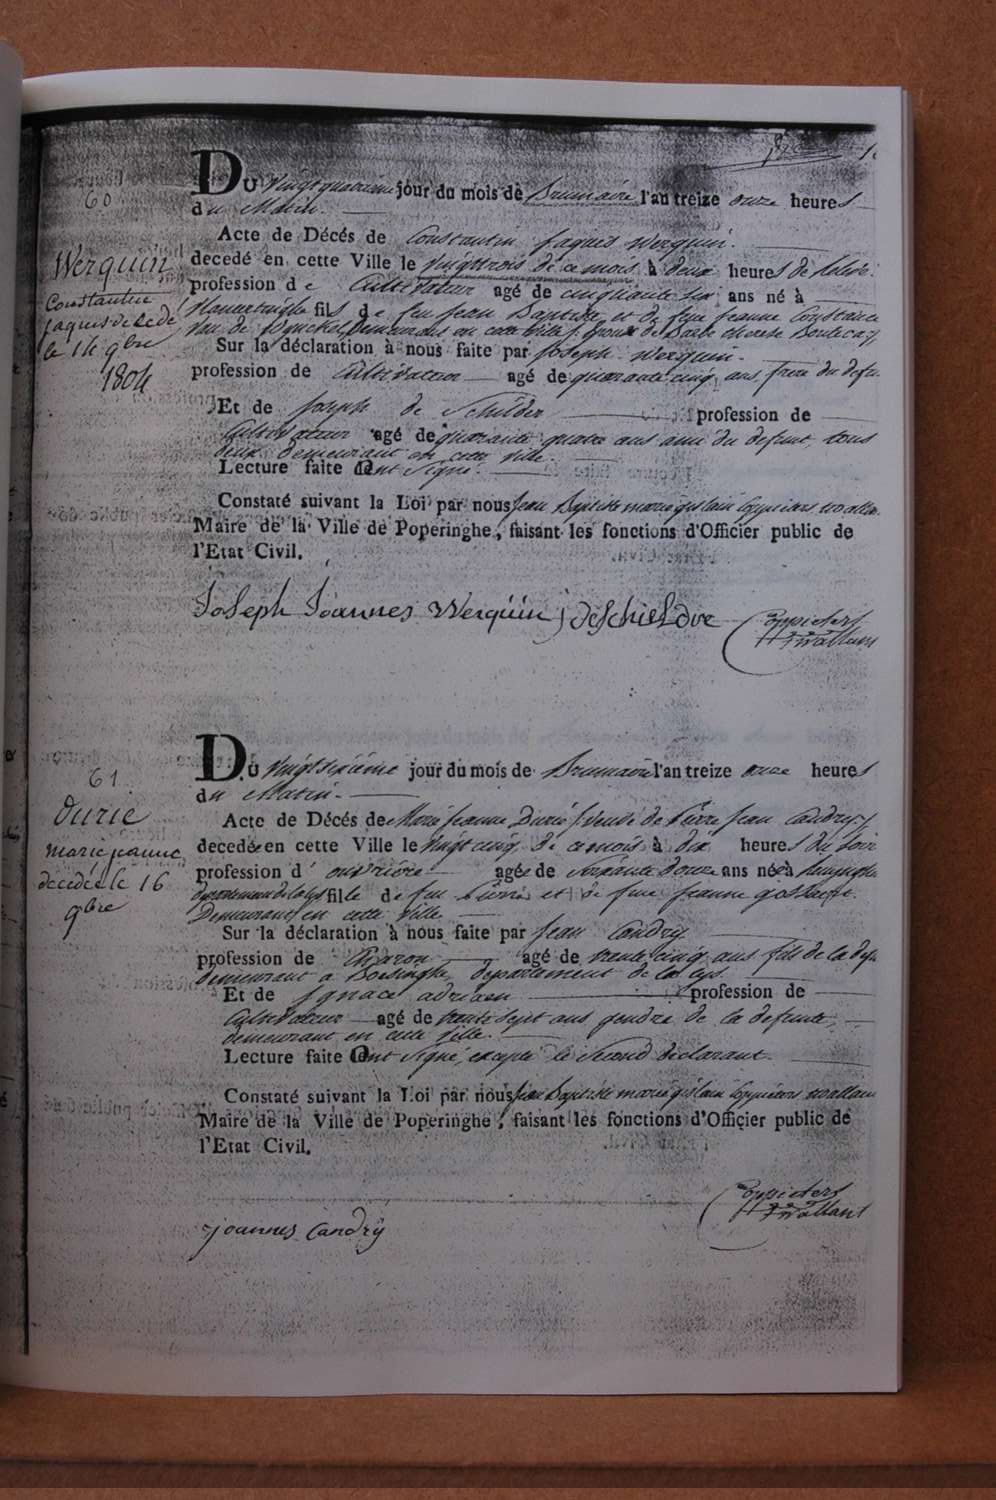 60
Werquin
Constantin
jaques decede
le 14 9bre
1804
Du vingtquatrieme jour du mois de Brumaire l'an treize onze heures
du Matin.
Acte de Décés de Constantin Jaques Werquin.
decedé en cette Ville le vingttrois de ce mois à deux heures de
profession de Cultivateur agé de cinquante six ans né à
fils de feu Jean Baptiste et de feue Jeanne Constance
demeurant en cette ville Epoux de
Sur la déclaration à nous faite par Joseph Werquin.
profession de Cultivateur agé de quarante cinq ans, frere du defu
Et de Joseph de Schilder profession de
Cultivateur agé de quarante quatre ans ami du defunt, tous
deux demeurant en cette ville.
Lecture faite Ont Signé.
Constaté suivant la Loi par nous Jean Baptiste marie
Maire de la Ville de Poperinghe, faisant les fonctions d'Officier public de
l'Etat Civil.
Joseph Joannes Werquin j deschieldre Coppieters
Twallant
61
Durie
marie jeanne
decédée le 16
9bre
Du Vingtsixieme jour du mois de Brumaire l'an treize onze heures
du Matin.
Acte de Décés de Marie Jeanne Durie veuve de Pierre Jean Candry
decedée en cette Ville le Vingt cinq de ce mois à dix heures du Soir
profession d'ouvriere agée de Soixante douze ans née à
departement de la Lys fille de feu Pierre et de feue Jeanne
Demeurant en cette Ville.
Sur la déclaration à nous faite par Jean Candry
profession de Charon agé de trente cinq ans fils de la def
demeurant a Boesinghe, departement de la Lys.
Et de Ignace adriaen profession de
Cultivateur agé de trente Sept ans gendre de la defunte,
demeurant en cette ville.
Lecture faite Ont Signé, excepté le Second declarant.
Constaté suivant la Loi par nous Jean Baptiste marie
Maire de la Ville de Poperinghe, faisant les fonctions d'Officier public de
l'Etat Civil.
Coppieters
Twallant
joannes Candry